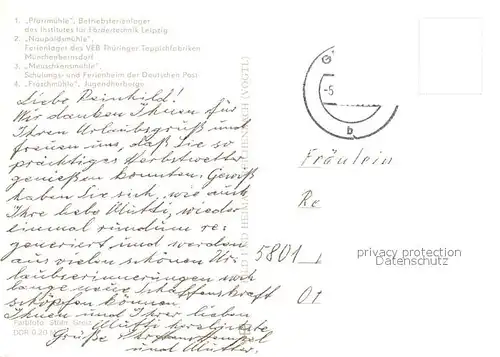 1. „Pfarrmühle“, Betriebsferienlager
des Institutes für Fördertechnik Leipzig
2. „Naupoldsmühle“,
Ferienlager des VEB Thüringer Teppichfabriken
Münchenbernsdorf
3. „Meuschkensmühle“,
Schulungs- und Ferienheim der Deutschen Post
4. „Froschmühle“, Jugendherberge
Liebe Reinhild!
Wir danken Ihnen für
Ihren Urlaubsgruß und
freuen uns, daß Sie so
prächtiges Herbstwetter
genießen konnten. Gewiß
haben Sie sich, wie auch
Ihre liebe Mutti, wieder
einmal rundum re-
generiert und werden
aus vielen schönen Ur-
laubserinnerungen noch
lange neue Schaffenskraft
schöpfen können.
Ihnen und Ihrer lieben
Mutti herzlichste
Grüße Ihr Hempel
und Mutter.
Farbfoto Stier, Greiz
DDR 0.20 M
-5
b
Fräulein
Re
5801
Ot
privacy protection
Datenschutz